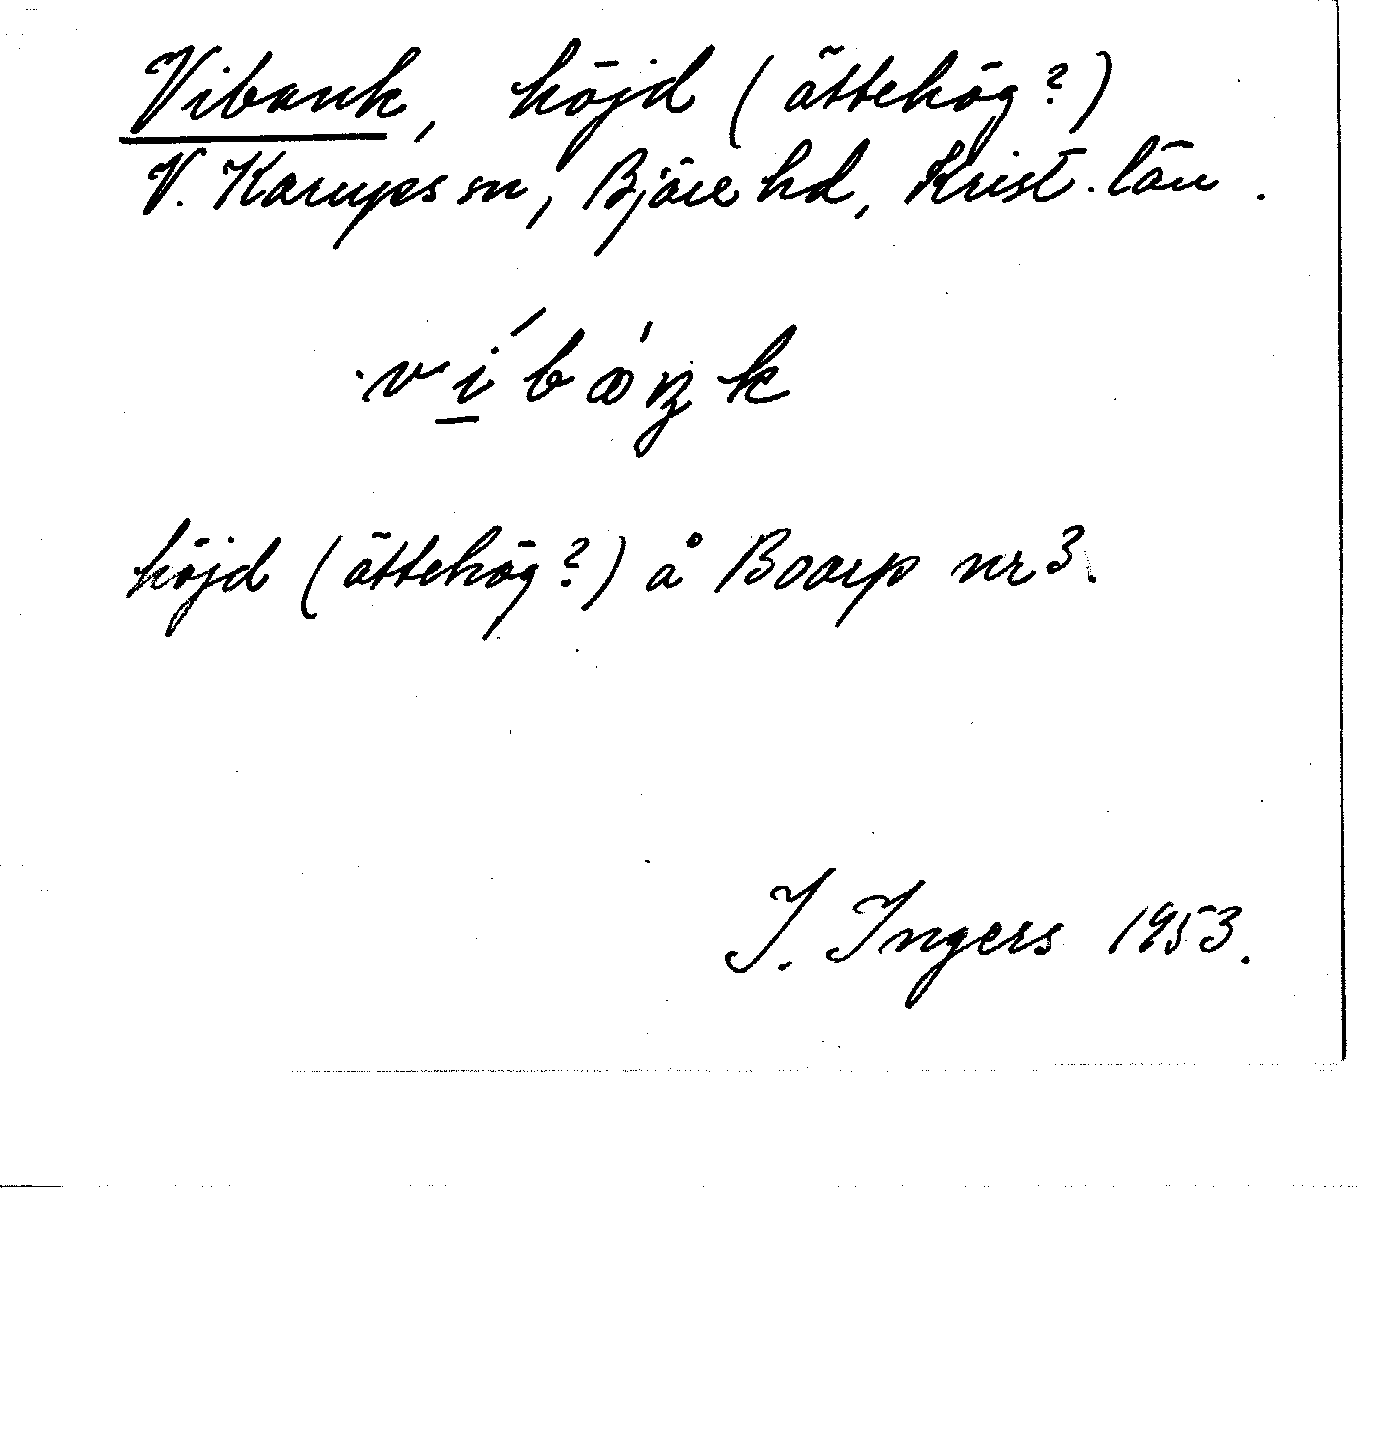 Vibank, höjd (ättehög?)
V. Karups sn, Bjäre hd, Krist. län.
víbáŋk
höjd (ättehög?) å Boarp nr 3.
I. Ingers 1953.